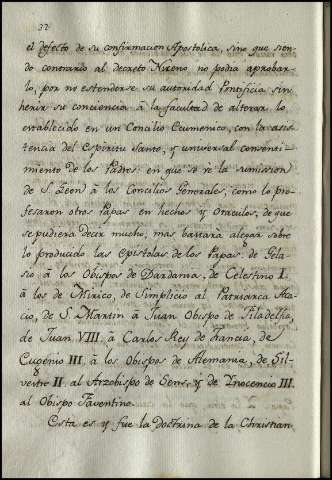 32
el defecto de su confirmacion Apostolica, sino que sien-
do contrario al decreto Niceno no podia aprobar-
lo, por no estenderse su autoridad Pontificia sin
herir su conciencia à la facultad de alterar lo
establecido en un Concilio Ecumenico, con la asis-
tencia del Espiritu Santo, y universal consenti-
miento de los Padres en que se vè la sumision
de S. Leon à los Concilios Generales, como lo pro-
fesaron otros Papas en hechos y Oraculos, de que
se pudiera decir mucho, mas bastarà alegar sobre
lo producido las epistolas de los Papas de Gela-
sio à los Obispos de Dardania, de Celestino I.
à los de Ilirico, de Simplicio al Patriarca Aca-
cio, de S. Martin à Juan Obispo de Filadelfia,
de Juan VIII. à Carlos Rey de Francia, de
Eugenio III. à los Obispos de Alemania, de Sil-
vestre II. al Arzobispo de Sens, y de Ynocencio III.
al Obispo Faventino.
Esta es y fue la doctrina de la Christian